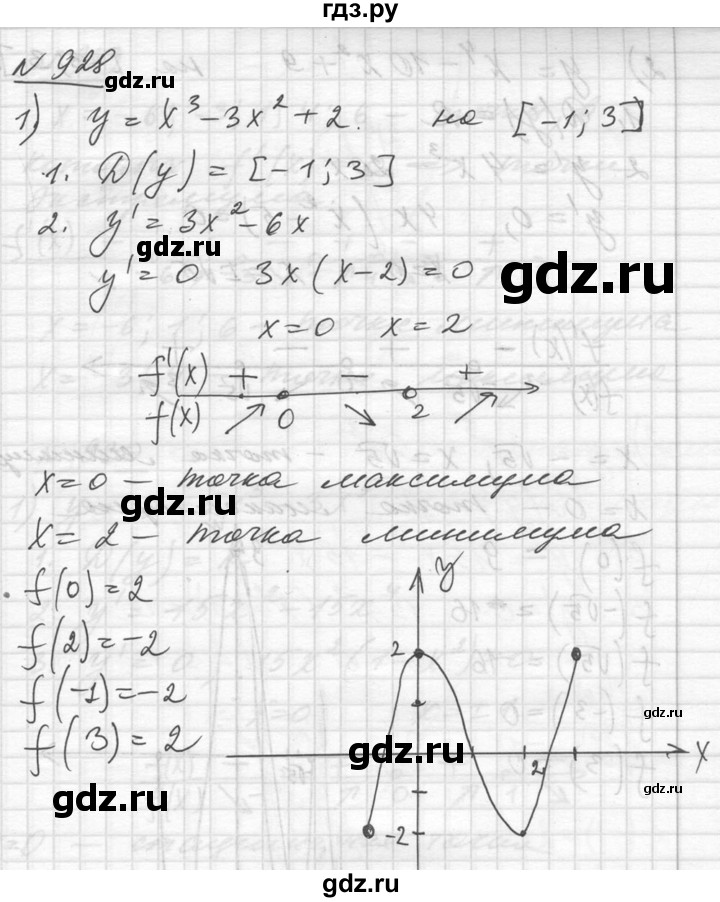 гдз.ру
N 928
gdz.ru
1) y = x³ - 3x² + 2. на [-1; 3]
1. D(y) = [-1; 3]
2. y' = 3x² - 6x
gdz.ru
y' = 0 3x(x-2) = 0
gdz.ru
x = 0 x = 2
f'(x) + - +
f(x) ↗ 0 ↘ 2 ↗
x = 0 – точка максимума
x = 2 – точка минимума
f(0) = 2
f(2) = -2
f(-1) = -2
f(3) = 2
y
2
gdz.ru
gdz.ru
2 x
gdz.ru
gdz.ru
-2
gdz.ru
gdz.ru